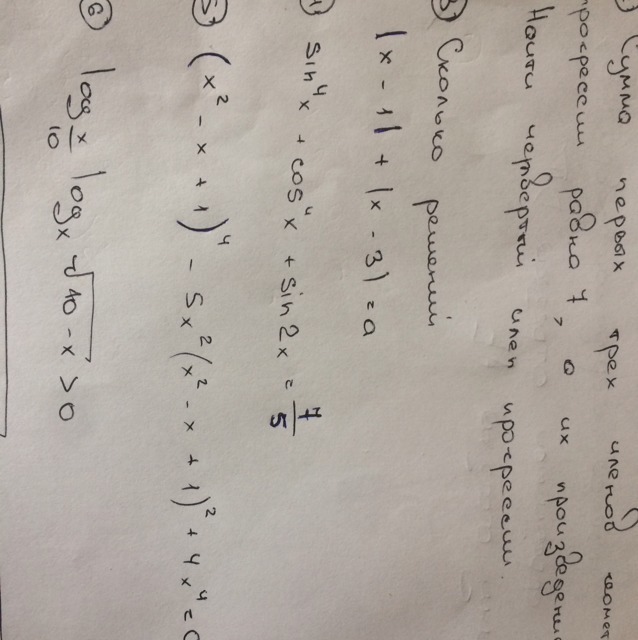 Сумма первых трех членов
прогрессии равна 7, а их
Найти четвертый член прогрессии.
3) Сколько решений
|x - 1| + |x - 3| = a
4) sin⁴x + cos⁴x + sin2x = 7/5
5) (x² - x + 1)⁴ - 5x²(x² - x + 1)² + 4x⁴ =
6) log_{x/10} log_x √(10 - x) > 0